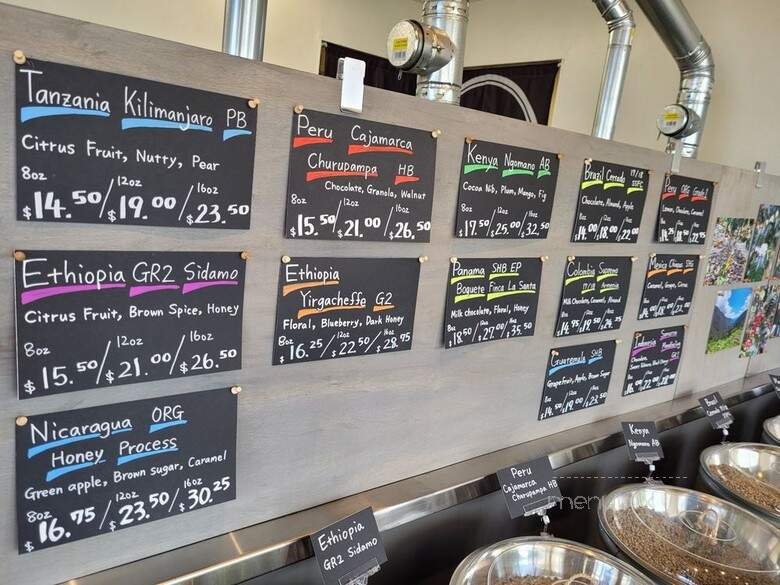 Tanzania Kilimanjaro PB
Citrus Fruit, Nutty, Pear
8oz 12oz 16oz
$14.50/$19.00/$23.50
Ethiopia GR2 Sidamo
Citrus Fruit, Brown Spice, Honey
8oz 12oz 16oz
$15.50/$21.00/$26.50
Nicaragua ORG
Honey Process
Green apple, Brown sugar, Caramel
8oz 12oz 16oz
$16.75/$23.50/$30.25
Peru Cajamarca
Churupampa HB
Chocolate, Granola, Walnut
8oz 12oz 16oz
$15.50/$21.00/$26.50
Ethiopia
Yirgacheffe G2
Floral, Blueberry, Dark Honey
8oz 12oz 16oz
$16.25/$22.50/$28.75
Kenya Ngomano AB
Cocoa Nib, Plum, Mango, Fig
8oz 12oz 16oz
$17.50/$25.00/$32.50
Panama SHB EP
Boquete Finca La Santa
Milk chocolate, Floral, Honey
8oz 12oz 16oz
$18.50/$27.00/$35.50
Brazil Cerrado 17/18
Chocolate, Almond, Apple
8oz 12oz 16oz
$14.00/$18.00/$22.00
Colombia Supremo
17/18 Armenia
Milk Chocolate, Caramel, Almond
8oz 12oz 16oz
Guatemala SHB
Grapefruit, Apple, Brown Sugar
8oz 12oz 16oz
$14.50/$19.00/$23.50
Peru ORG Grade 1
Lemon, Chocolate, Caramel
8oz 12oz 16oz
Mexico
Caramel, Grape, Citrus
8oz 12oz 16oz
Indonesia Sumatra
Mandheling
Chocolate,
8oz 12oz 16oz
Ethiopia
GR2 Sidamo
Peru
Cajamarca
Churupampa HB
Kenya
Ngomano AB
Brazil
Cerrado
menu